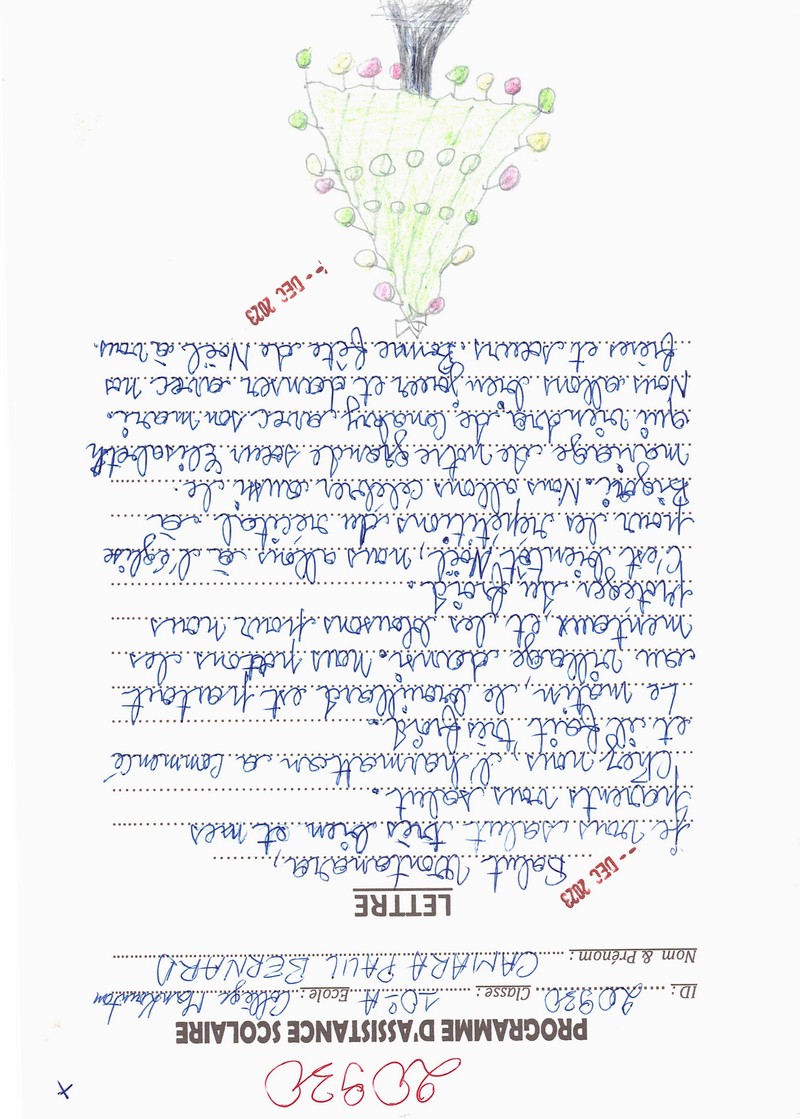 20930
PROGRAMME D'ASSISTANCE SCOLAIRE
ID: 20930 Classe: 10è A Ecole: Collège
Nom & Prénom: CAMARA PAUL BERNARD
LETTRE
-- DEC 2023
Salut Montanara,
Je vous salut très bien et mes
parents vous salut.
Chez nous, l'harmattan a commencé
et il fait très froid.
Le matin, le brouillard est partout
au village dans. Nous portons des
menteaux et des blousons pour nous
proteger du froid.
C'est bientôt Noël, nous allons à l'église
pour les répétitions du récital à
Nous allons célébrer aussi le
mariage de notre grande sœur Elisabeth
qui viendra de Conakry avec son mari.
Nous allons bien jouer et danser avec nos
frères et sœurs. Bonne fête de Noël à vous.
-- DEC 2023